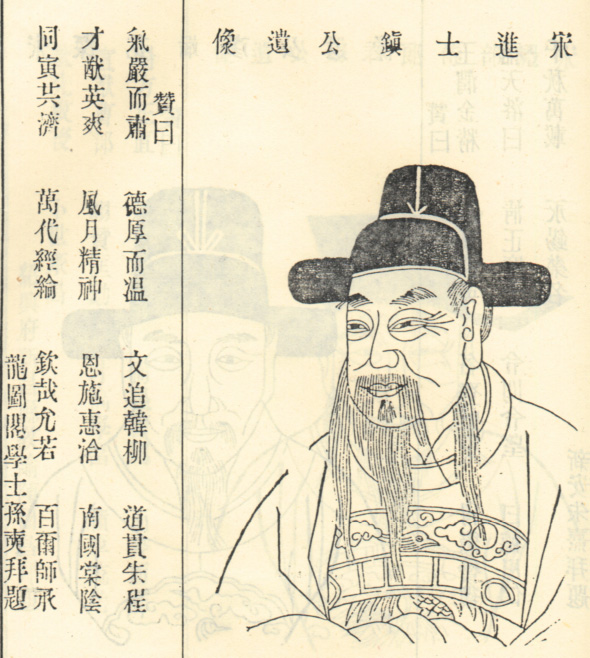 宋進士鎭公遺像
贊曰
氣嚴而肅 德厚而温 文追韓柳 道貫朱程
才猷英爽 風月精神 恩施惠洽 南國棠陰
同寅共濟 萬代經綸 欽哉允若 百爾師承
龍圖閣學士孫奭拜題